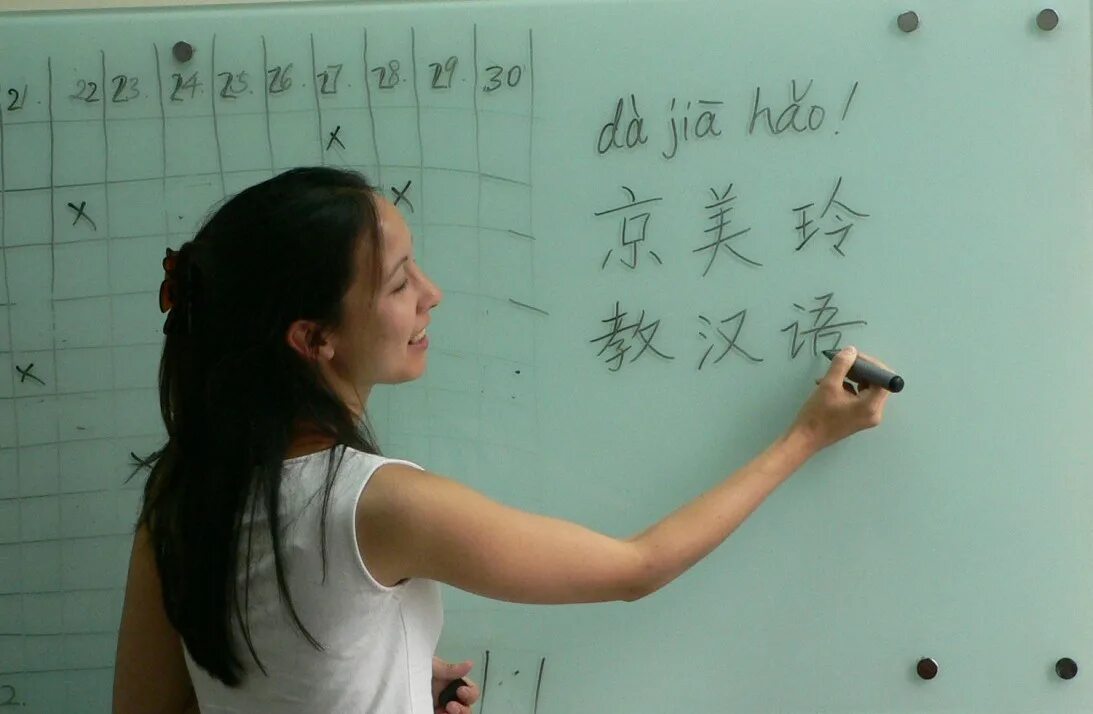 21. 22 23. 24. 25. 26. 27. 28. 29. 30
dà jiā hǎo!
京美玲
教汉语
x
x
x
x
x
2.